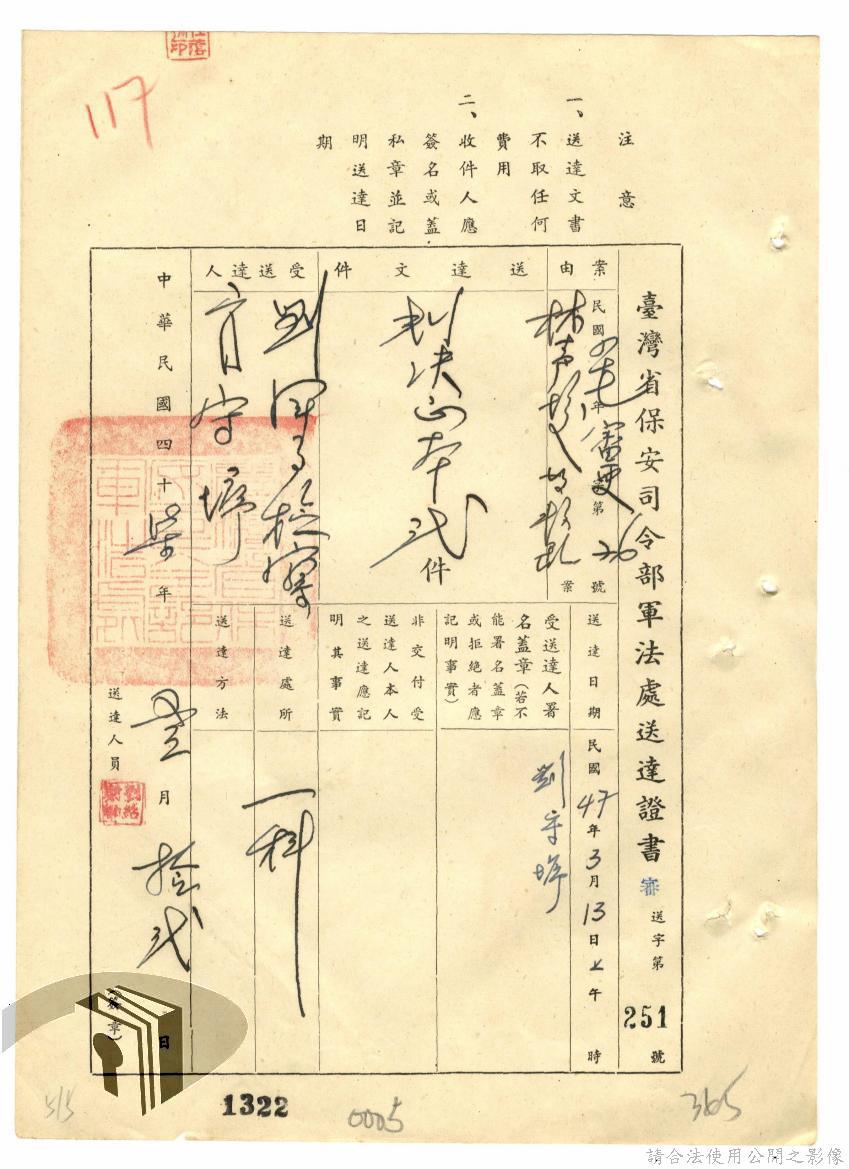 117
注意
一、送達文書
不取任何
費用
二、收件人應
簽名或蓋
私章並記
明送達日
期
臺灣省保安司令部軍法處送達證書
審送字第251號
案由
民國47年審更字第26號
林声發等叛亂案
送達文件
判決正本弍件
受送達人
劉軍事檢察官守墀
送達日期
民國47年3月13日上午時
受送達人署
名蓋章(若不
能署名蓋章
或拒絕者應
記明事實)
劉守墀
非交付受
送達人本人
之送達應記
明其事實
送達處所
一科
送達方法
中華民國四十柒年叁月拾弍日
送達人員
(簽章)
515
1322
0005
365
請合法使用公開之影像